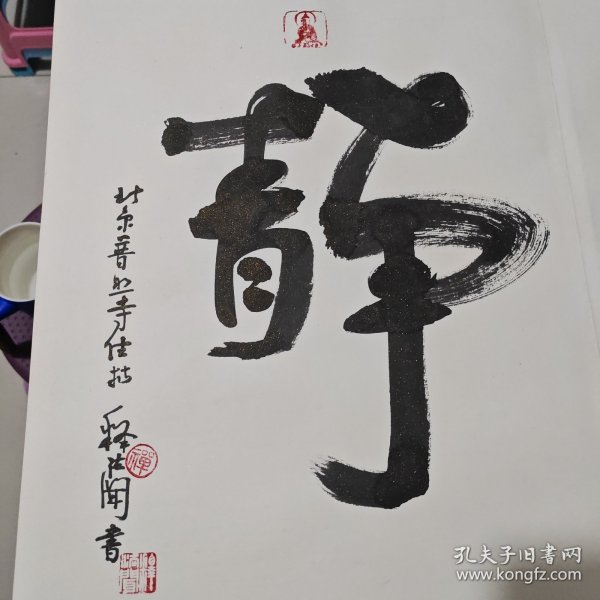 静
北京普照寺住持
释法闻书
禅
孔夫子旧书网
www.kongfz.com